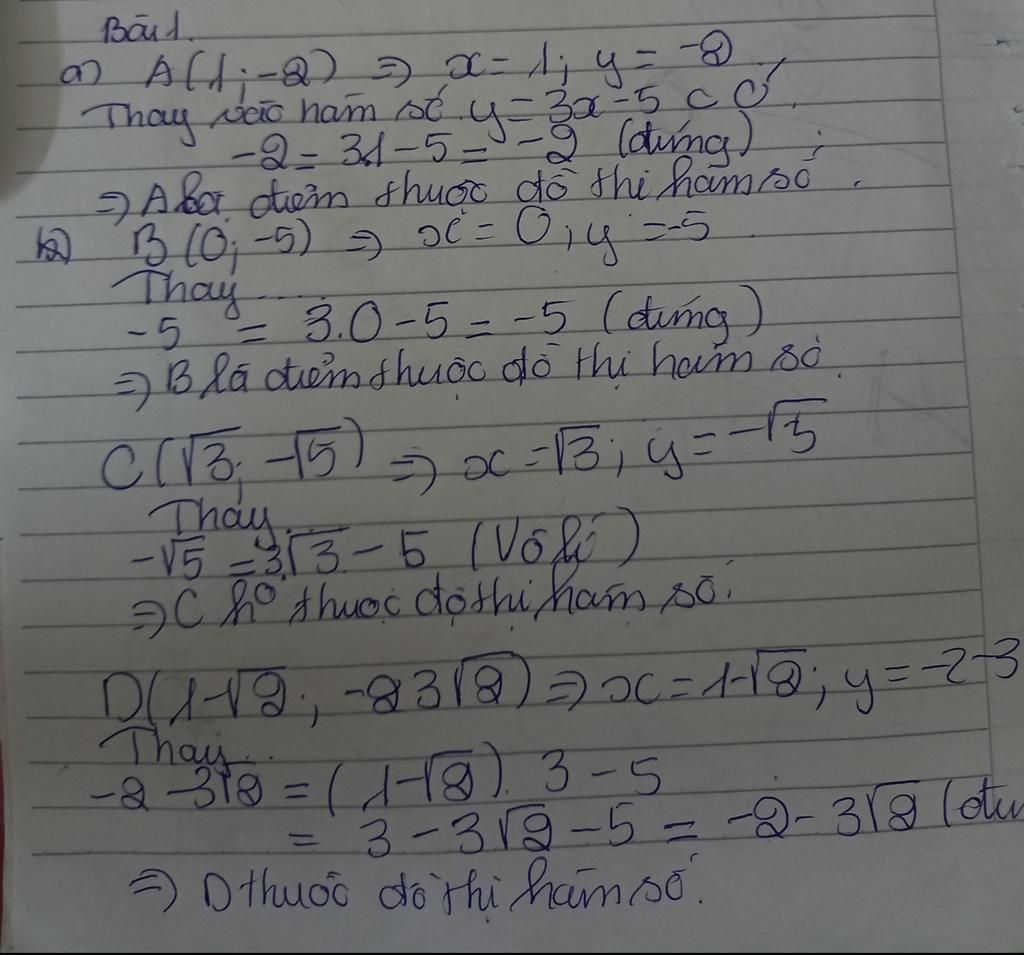 Bài 1.
a) A(1; -2) => x = 1; y = -2
Thay vào hàm số y = 3x - 5 có
-2 = 3.1 - 5 = -2 (đúng)
=> A là điểm thuộc đồ thi hàm số.
b) B(0; -5) => x = 0; y = -5
Thay.....
-5 = 3.0 - 5 = -5 (đúng)
=> B là điểm thuộc đồ thị hàm số.
C(√3; -√5) => x = √3; y = -√5
Thay..
-√5 = 3.√3 - 5 (Vô lí)
=> C ko thuộc đồ thị hàm số.
D(1-√2; -23√2) => x = 1-√2; y = -2-3
Thay...
-2 -3√2 = (1-√2). 3 - 5
= 3 - 3√2 - 5 = -2 - 3√2 (đú
=> D thuộc đồ thị hàm số.